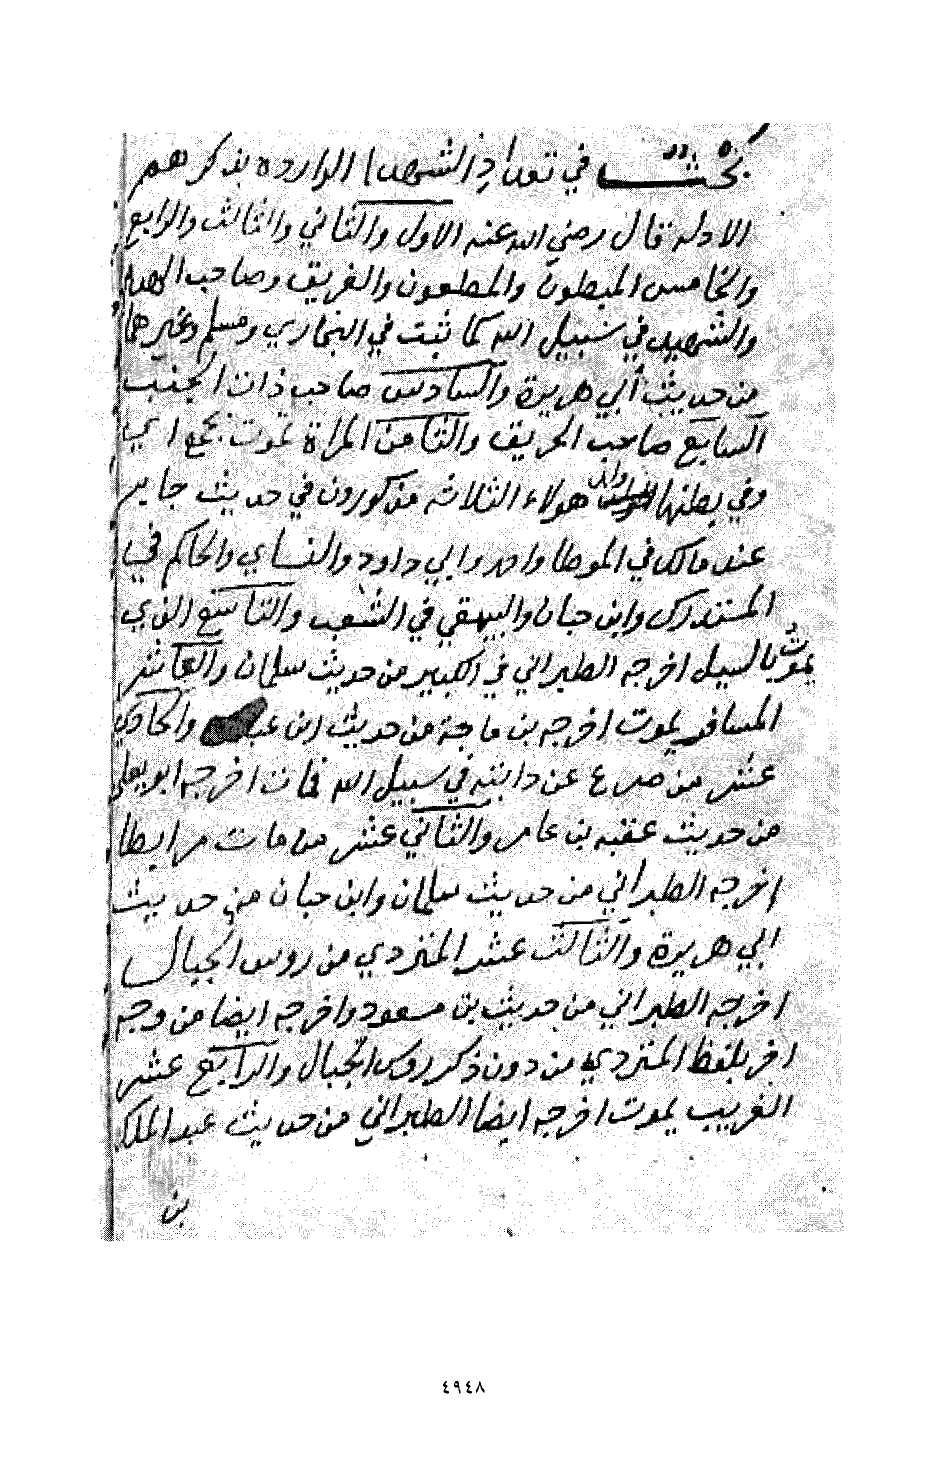 بحث في تعداد الشهدا الوارده بذكرهم
الادله قال رضي الله عنه الاول والثاني والثالث والرابع
والخامس المبطون والمطعون والغريق وصاحب الهدم
والشهيد في سبيل الله كما ثبت في البخاري ومسلم وغيرهما
من حديث أبي هريرة والسادس صاحب ذات الجنب
السابع صاحب الحريق والثامن المراة تموت بجمع اي
وفي بطنها ولد هولاء الثلاثه مذكورون في حديث جابر
عند مالك في الموطا واحمد وابي داود والنساي والحاكم في
المستدرك وابن حبان والبيهقي في الشعب والتاسع الذي
يموت بالسيل اخرجه الطبراني في الكبير من حديث سلمان والعاشر
المسافر يموت اخرجه بن ماجة من حديث ابن عباس والحادي
عشر من صرع عن دابته في سبيل الله فمات اخرجه ابو يعلى
من حديث عقبه بن عامر والثاني عشر من مات مرابطا
اخرجه الطبراني من حديث سلمان وابن حبان من حديث
ابي هريرة والثالث عشر المتردي من روس الجبال
اخرجه الطبراني من حديث بن مسعود واخرجه ايضا من وجه
اخر بلفظ المتردي من دون ذكر روس الجبال والرابع عشر
الغريب يموت اخرجه ايضا الطبراني من حديث عبد الملك
بن
٤٩٤٨